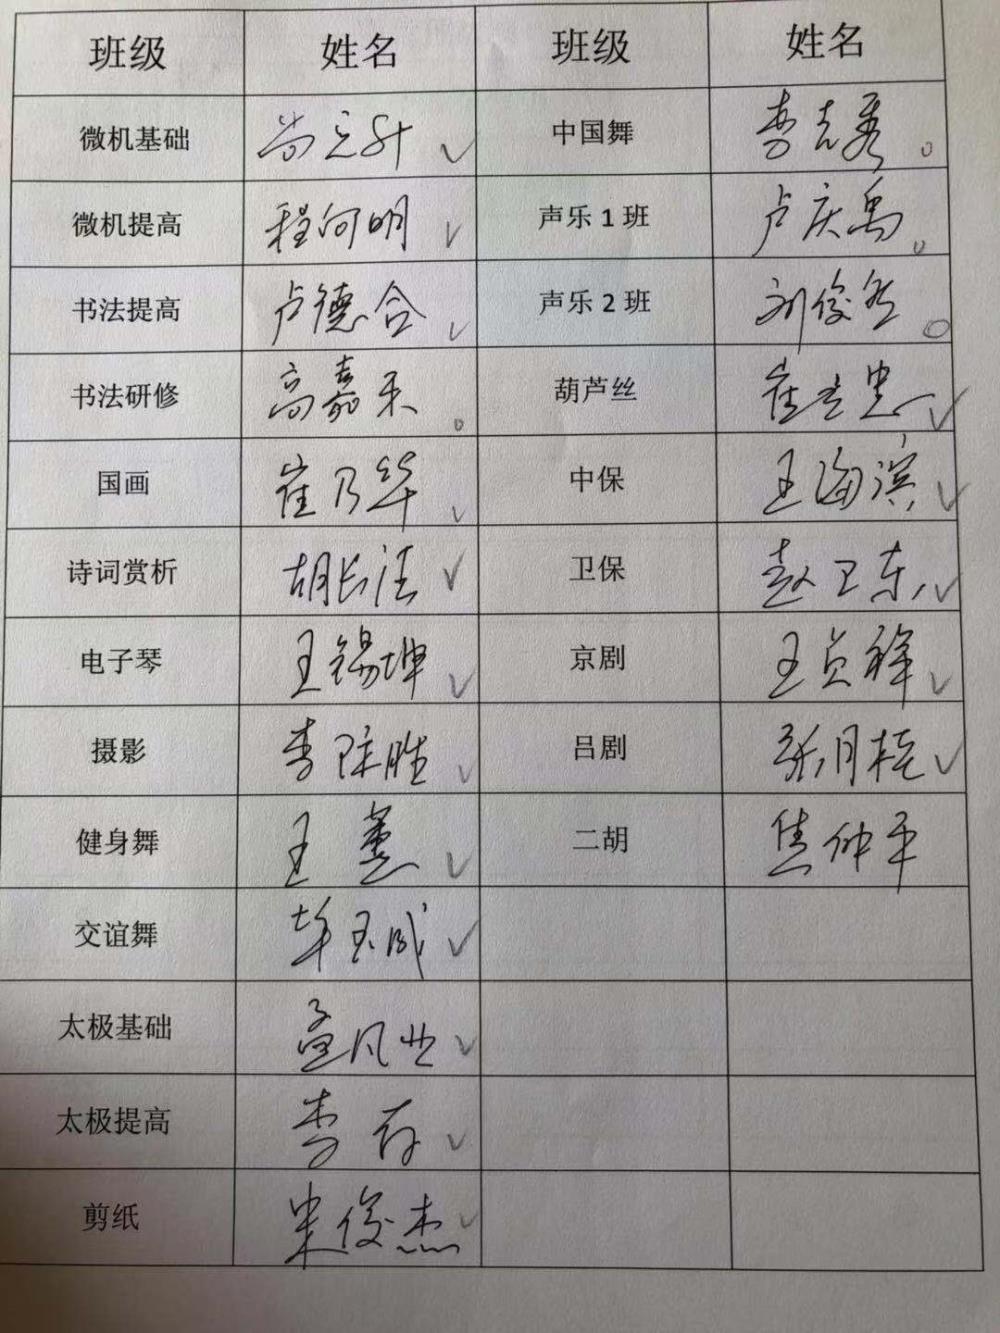 班级 姓名 班级 姓名
微机基础 尚立升 ✓ 中国舞 李克秀 。
微机提高 程向明 ✓ 声乐1班 卢庆禹 。
书法提高 卢德合 ✓ 声乐2班 刘俊 ○
书法研修 高嘉禾 。 葫芦丝 崔忠 ✓
国画 崔乃华 ✓ 中保 王海滨 ✓
诗词赏析 胡长法 ✓ 卫保 赵卫东 ✓
电子琴 王锡坤 ✓ 京剧 王贞祥 ✓
摄影 李陆胜 ✓ 吕剧 张月桂 ✓
健身舞 王 ✓ 二胡 焦仲平
交谊舞 牟玉成 ✓
太极基础 孟凡 ✓
太极提高 李存 ✓
剪纸 俊杰 ✓